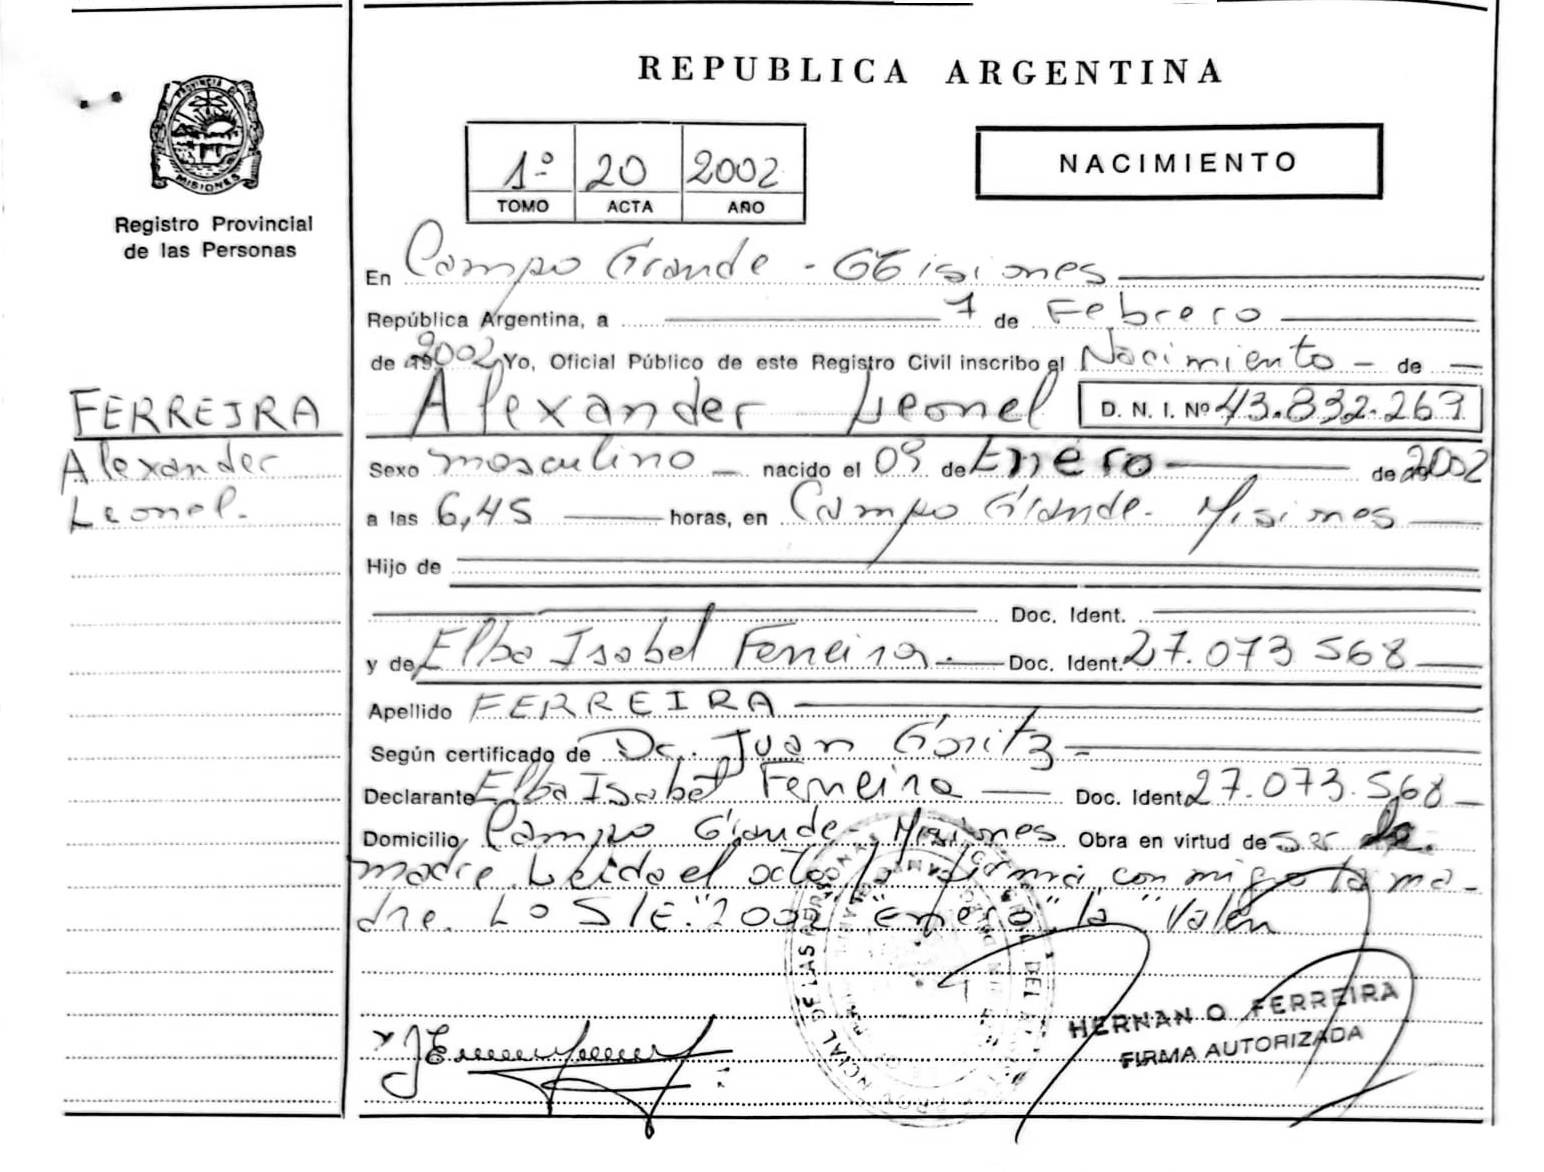 REPUBLICA ARGENTINA
PROVINCIA DE
MISIONES
Registro Provincial
de las Personas
1º 20 2002
TOMO ACTA AÑO
NACIMIENTO
En Campo Grande - Misiones
República Argentina, a 7 de Febrero
de 2002 Yo, Oficial Público de este Registro Civil inscribo el Nacimiento - de
FERREIRA
Alexander
Leonel.
Alexander Leonel D. N. I. Nº 43.832.269
Sexo masculino nacido el 09 de Enero de 2002
a las 6,45 horas, en Campo Grande - Misiones
Hijo de
Doc. Ident.
y de Elba Isabel Ferreira. Doc. Ident. 27.073 568
Apellido FERREIRA
Según certificado de Dr. Juan Goritz
Declarante Elba Isabel Ferreira Doc. Ident. 27.073.568
Domicilio Campo Grande - Misiones Obra en virtud de ser la
madre. Leida el acta la firma con migo la ma-
dre. Lo S/E. "2002" "Enero" "la" Valen
HERNAN O. FERREIRA
FIRMA AUTORIZADA